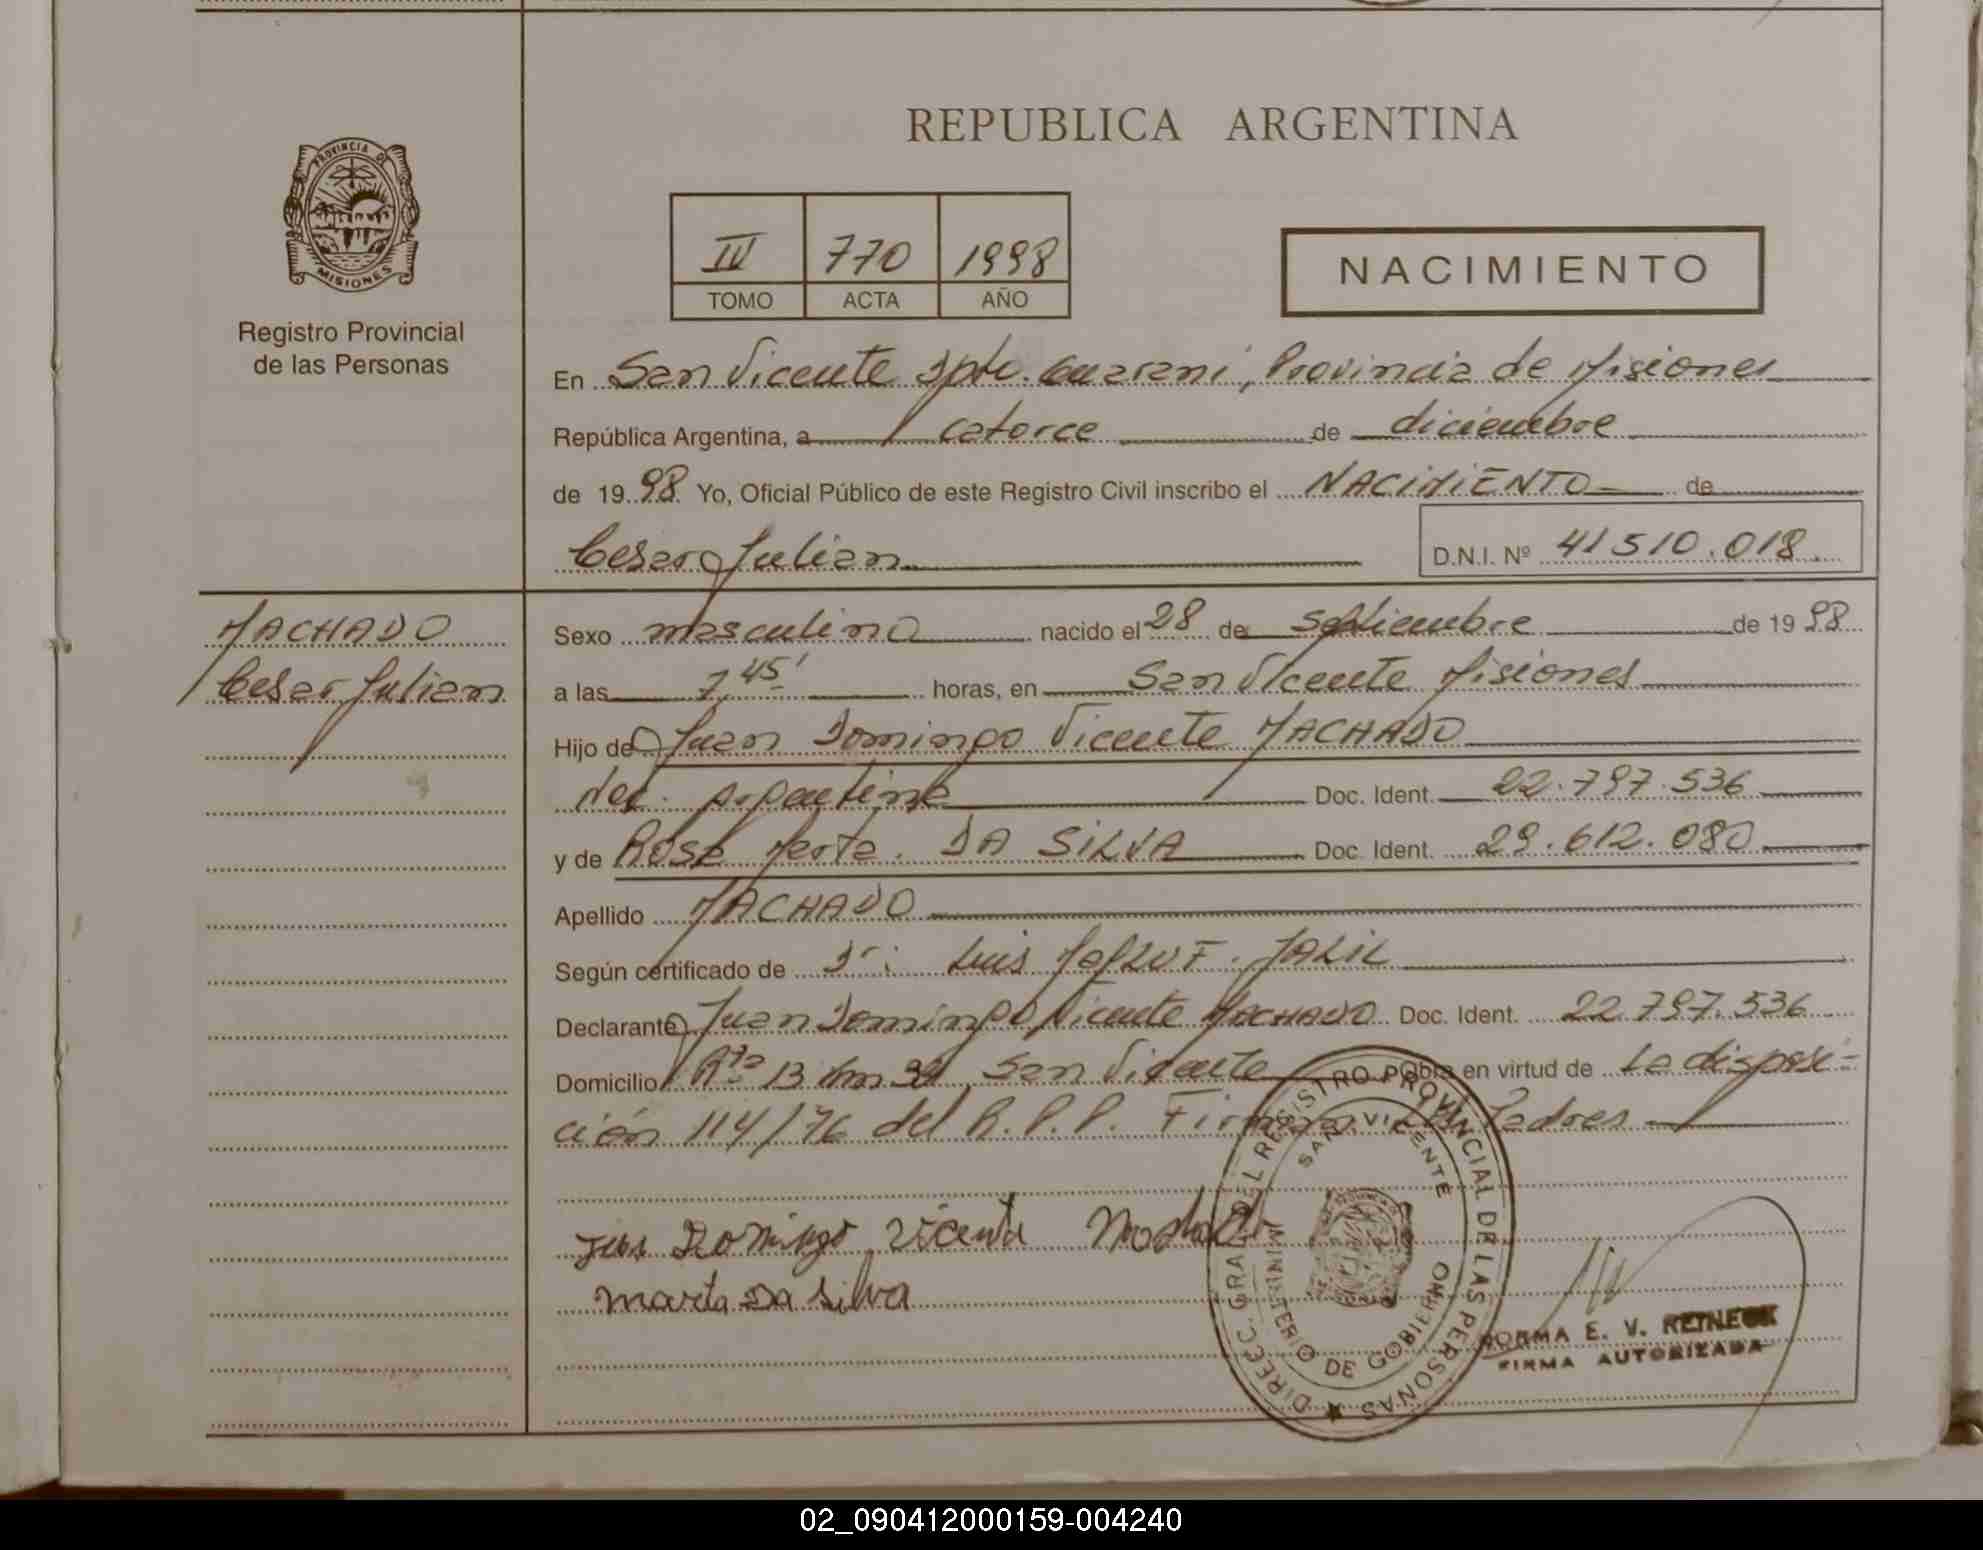 REPUBLICA ARGENTINA
PROVINCIA DE
MISIONES
Registro Provincial
de las Personas
IV 770 1998
TOMO ACTA AÑO
NACIMIENTO
En San Vicente Dpto. Guarani, Provincia de Misiones
República Argentina, a catorce de diciembre
de 1998 Yo, Oficial Público de este Registro Civil inscribo el NACIMIENTO de
Cesar Julian D.N.I. Nº 41510.018
MACHADO
Cesar Julian
Sexo masculino nacido el 28 de septiembre de 1998
a las 7,45' horas, en San Vicente Misiones
Hijo de Juan Domingo Vicente MACHADO
nac. argentina Doc. Ident. 22.797.536
y de Rosa Marta. DA SILVA Doc. Ident. 29.612.080
Apellido MACHADO
Según certificado de Dr: Luis F. JALIL
Declarante Juan Domingo Vicente MACHADO Doc. Ident. 22.797.536
Domicilio Rta 13 km San Vicente Obra en virtud de La disposi-
ción 114/76 del R.P.P. Firman Padres
Domingo Vicente
Marta Da Silva
DIRECC. GRAL DEL REGISTRO PROVINCIAL DE LAS PERSONAS
SAN VICENTE
MINISTERIO DE GOBIERNO
NORMA E. V. REINECK
FIRMA AUTORIZADA
02_090412000159-004240